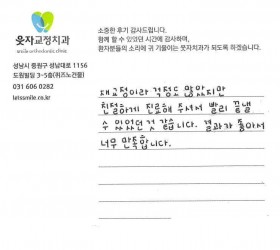 웃자교정치과
smile orthodontic clinic
성남시 중원구 성남대로 1156
도원빌딩 3-5층(퀴즈노건물)
031 606 0282
letssmile.co.kr
소중한 후기 감사드립니다.
함께 할 수 있었던 시간에 감사하며,
환자분들의 소리에 귀 기울이는 웃자치과가 되도록 하겠습니다.
재교정이라 걱정도 많았지만
친절하게 진료해 주셔서 빨리 끝낼
수 있었던것 같습니다. 결과가 좋아서
너무 만족합니다.